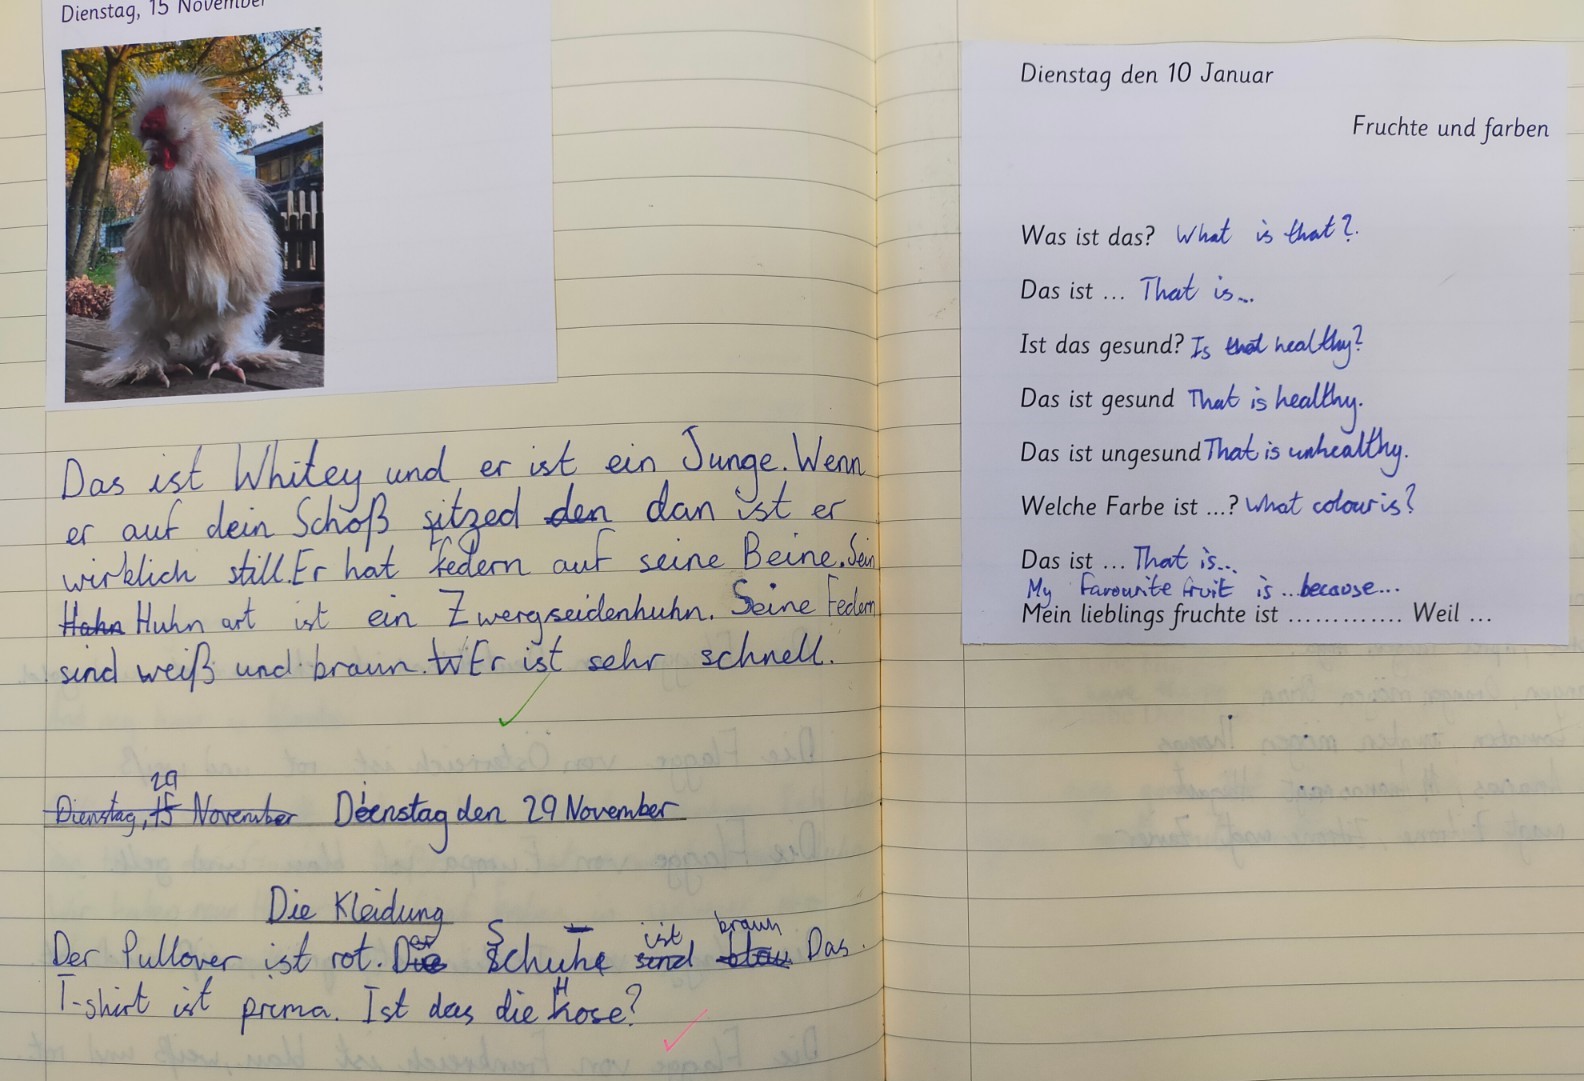 Dienstag, 15 November
Das ist Whitey und er ist ein Junge. Wenn
er auf dein Schoß sitzed den dan ist er
wirklich still. Er hat federn auf seine Beine. Sein
Hahn Huhn art ist ein Zwergseidenhuhn. Seine Federn
sind weiß und braun. W Er ist sehr schnell.
29
Dienstag, 15 November Dienstag den 29 November
Die Kleidung
er S ist braun
Der Pullover ist rot. Die Schuhe sind blau. Das
T-shirt ist prima. Ist das die Hose?
Dienstag den 10 Januar
Fruchte und farben
Was ist das? What is that?
Das ist ... That is...
Ist das gesund? Is that healthy?
Das ist gesund That is healthy.
Das ist ungesund That is unhealthy.
Welche Farbe ist ...? What colour is?
Das ist ... That is...
My Favourite fruit is ... because...
Mein lieblings fruchte ist ............. Weil ...